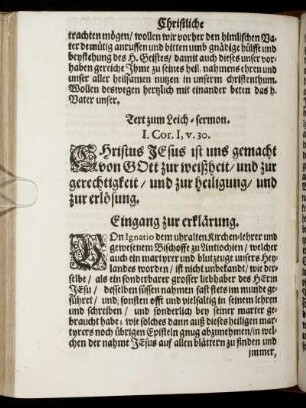 Christliche
trachten mögen/ wollen wir vorher den himlischen Va-
ter demütig anruffen und bitten umb gnädige hülffe und
beystehung des H. Geistes/ damit auch dieses unser vor-
haben gereiche Jhme zu seines heil. nahmens ehren und
unser aller heilsamen nutzen in unserm christenthum.
Wollen deswegen hertzlich mit einander beten das h.
Vater unser.
Text zum Leich-sermon.
I. Cor. I, v. 30.
CHristus JEsus ist uns gemacht
von GOtt zur weißheit/ und zur
gerechtigkeit/ und zur heiligung/ und
zur erlösung.
Eingang zur erklärung.
VOn Ignatio dem uhralten Kirchen-lehrer und
gewesenem Bischoffe zu Antiochien/ welcher
auch ein martyrer und blutzeuge unsers Hey-
landes worden/ ist nicht unbekandt/ wie der-
selbe/ als ein sonderbarer grosser liebhaber des HErrn
JEsu/ desselben süssen nahmen fast stets im munde ge-
führet/ und/ sonsten offt und vielfaltig in seinem lehren
und schreiben/ und sonderlich bey seiner marter ge-
braucht habe: wie solches dann auß dieses heiligen mar-
tyrers noch übrigen Episteln gnug abzunehmen/ in wel-
chen der nahme JEsus auf allen blättern zu finden und
immer,